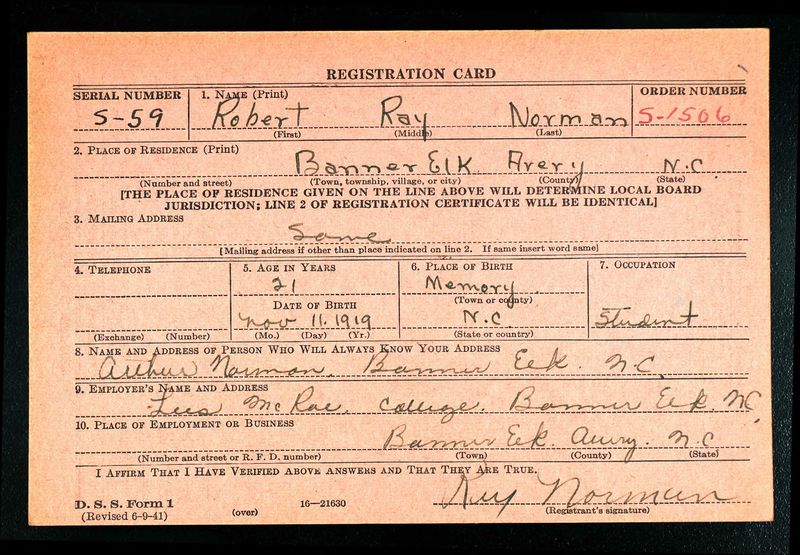 REGISTRATION CARD
SERIAL NUMBER 1. NAME (Print) ORDER NUMBER
S-59 Robert Ray Norman S-1506
(First) (Middle) (Last)
2. PLACE OF RESIDENCE (Print)
Banner Elk Avery N.C.
(Number and street) (Town, township, village, or city) (County) (State)
[THE PLACE OF RESIDENCE GIVEN ON THE LINE ABOVE WILL DETERMINE LOCAL BOARD
JURISDICTION; LINE 2 OF REGISTRATION CERTIFICATE WILL BE IDENTICAL]
3. MAILING ADDRESS
Same
[Mailing address if other than place indicated on line 2. If same insert word same]
4. TELEPHONE 5. AGE IN YEARS 6. PLACE OF BIRTH 7. OCCUPATION
21 Memory
(Town or county)
DATE OF BIRTH
Nov 11, 1919 N.C. Student
(Exchange) (Number) (Mo.) (Day) (Yr.) (State or country)
8. NAME AND ADDRESS OF PERSON WHO WILL ALWAYS KNOW YOUR ADDRESS
Arthur Norman, Banner Elk. N.C.
9. EMPLOYER'S NAME AND ADDRESS
Lees McRae. College. Banner Elk N.C.
10. PLACE OF EMPLOYMENT OR BUSINESS
Banner Elk. Avery. N.C
(Number and street or R. F. D. number) (Town) (County) (State)
I AFFIRM THAT I HAVE VERIFIED ABOVE ANSWERS AND THAT THEY ARE TRUE.
Ray Norman
D. S. S. Form 1
(Revised 6-9-41) (over) 16—21630 (Registrant's signature)